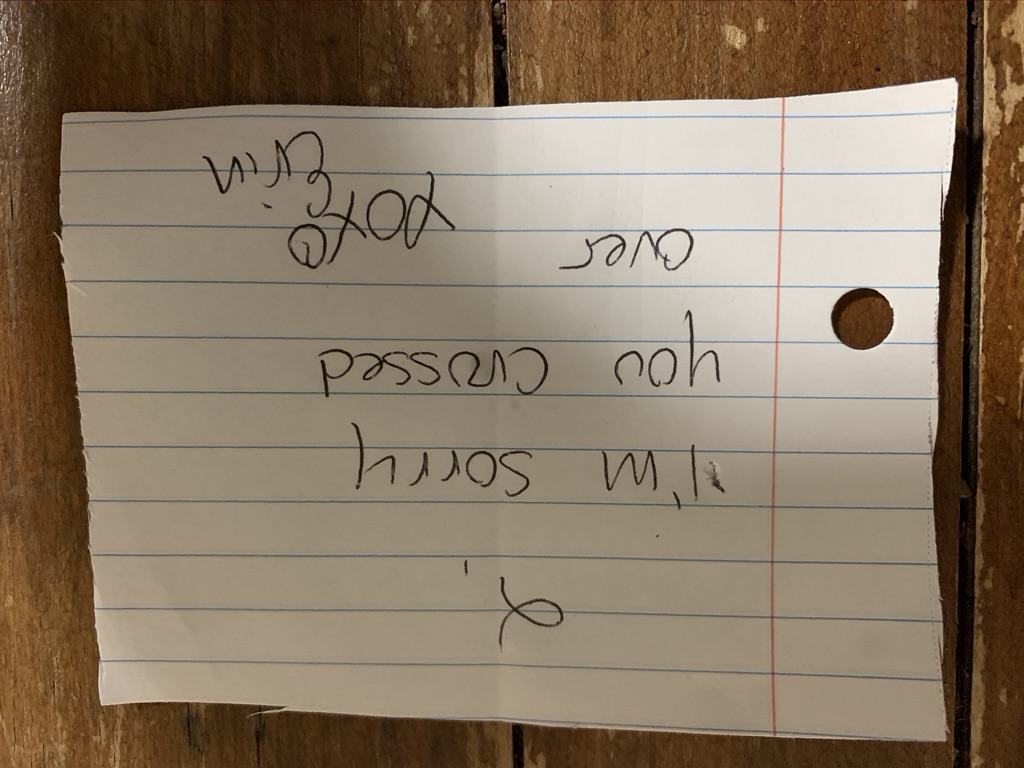 α,
I'm sorry
you crossed
over
xoxo
Erin